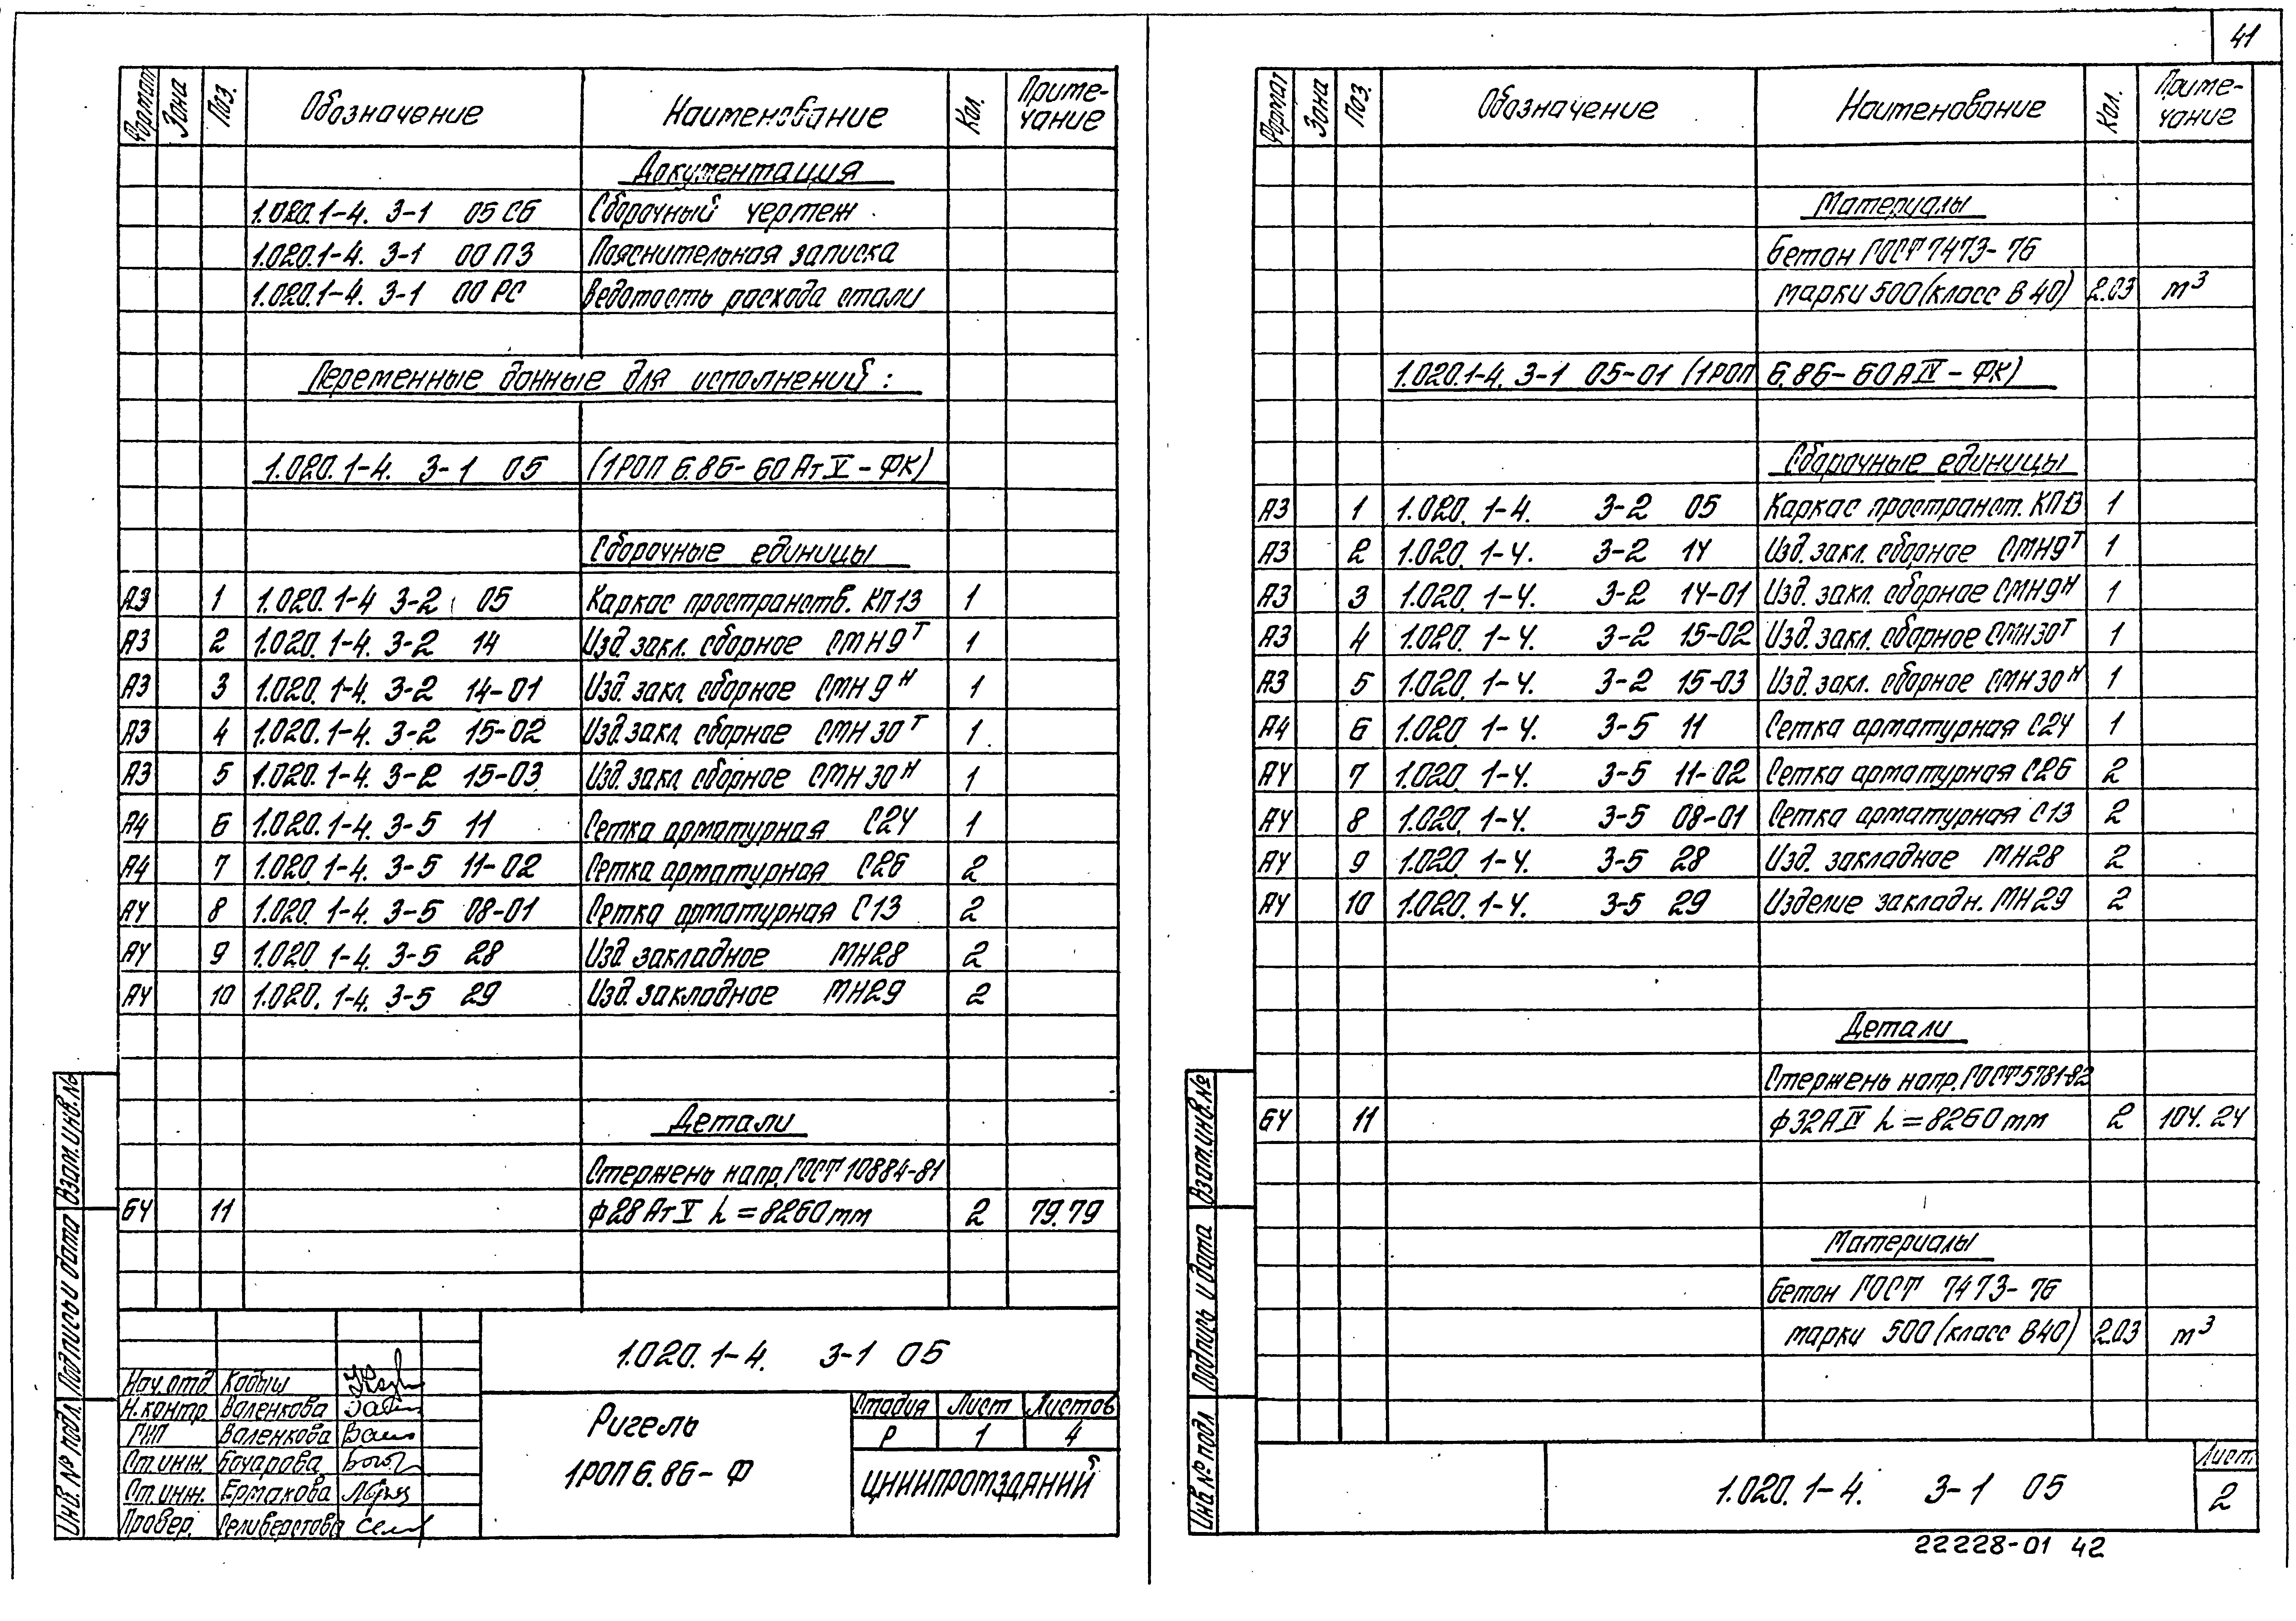 41
Формат Зона Поз. Обозначение Наименование Кол. Приме-
чание
Документация
1.020.1-4. 3-1 05 СБ Сборочный чертеж
1.020.1-4. 3-1 00 ПЗ Пояснительная записка
1.020.1-4. 3-1 00 РС Ведомость расхода стали
Переменные данные для исполнений:
1.020.1-4. 3-1 05 (1РОП 6.86-60 АтV-ФК)
Сборочные единицы
А3 1 1.020.1-4 3-2 05 Каркас пространств. КП13 1
А3 2 1.020.1-4. 3-2 14 Изд. закл. сборное СМН9Т 1
А3 3 1.020.1-4. 3-2 14-01 Изд. закл. сборное СМН9Н 1
А3 4 1.020.1-4. 3-2 15-02 Изд. закл. сборное СМН30Т 1
А3 5 1.020.1-4. 3-2 15-03 Изд. закл. сборное СМН30Н 1
А4 6 1.020.1-4. 3-5 11 Сетка арматурная С24 1
А4 7 1.020.1-4. 3-5 11-02 Сетка арматурная С26 2
А4 8 1.020.1-4. 3-5 08-01 Сетка арматурная С13 2
А4 9 1.020.1-4. 3-5 28 Изд. закладное МН28 2
А4 10 1.020.1-4. 3-5 29 Изд. закладное МН29 2
Детали
Стержень напр. ГОСТ 10884-81
БЧ 11 ф28АтV L=8260mm 2 79.79
Взам. инв. №
Подпись и дата
Инв. № подл.
1.020.1-4. 3-1 05
Нач. отд. Кодыш
Н. контр. Валенкова
ГИП Валенкова
Ст. инж. Бочарова
Ст. инж. Ермакова
Провер. Селиверстова
Ригель
1РОП6.86-Ф
Стадия Лист Листов
Р 1 4
ЦНИИПРОМЗДАНИЙ
Формат Зона Поз. Обозначение Наименование Кол. Приме-
чание
Материалы
Бетон ГОСТ 7473-76
марки 500 (класс В40) 2.03 m³
1.020.1-4. 3-1 05-01 (1РОП 6.86-60АIV-ФК)
Сборочные единицы
А3 1 1.020.1-4. 3-2 05 Каркас пространст. КП13 1
А3 2 1.020.1-4. 3-2 14 Изд. закл. сборное СМН9Т 1
А3 3 1.020.1-4. 3-2 14-01 Изд. закл. сборное СМН9Н 1
А3 4 1.020.1-4. 3-2 15-02 Изд. закл. сборное СМН30Т 1
А3 5 1.020.1-4. 3-2 15-03 Изд. закл. сборное СМН30Н 1
А4 6 1.020.1-4. 3-5 11 Сетка арматурная С24 1
А4 7 1.020.1-4. 3-5 11-02 Сетка арматурная С26 2
А4 8 1.020.1-4. 3-5 08-01 Сетка арматурная С13 2
А4 9 1.020.1-4. 3-5 28 Изд. закладное МН28 2
А4 10 1.020.1-4. 3-5 29 Изделие закладн. МН29 2
Детали
Стержень напр. ГОСТ5781-82
БЧ 11 ф32АIV L=8260mm 2 104.24
Материалы
Бетон ГОСТ 7473-76
марки 500 (класс В40) 2.03 m³
Взам. инв. №
Подпись и дата
Инв № подл
1.020.1-4. 3-1 05
Лист
2
22228-01 42